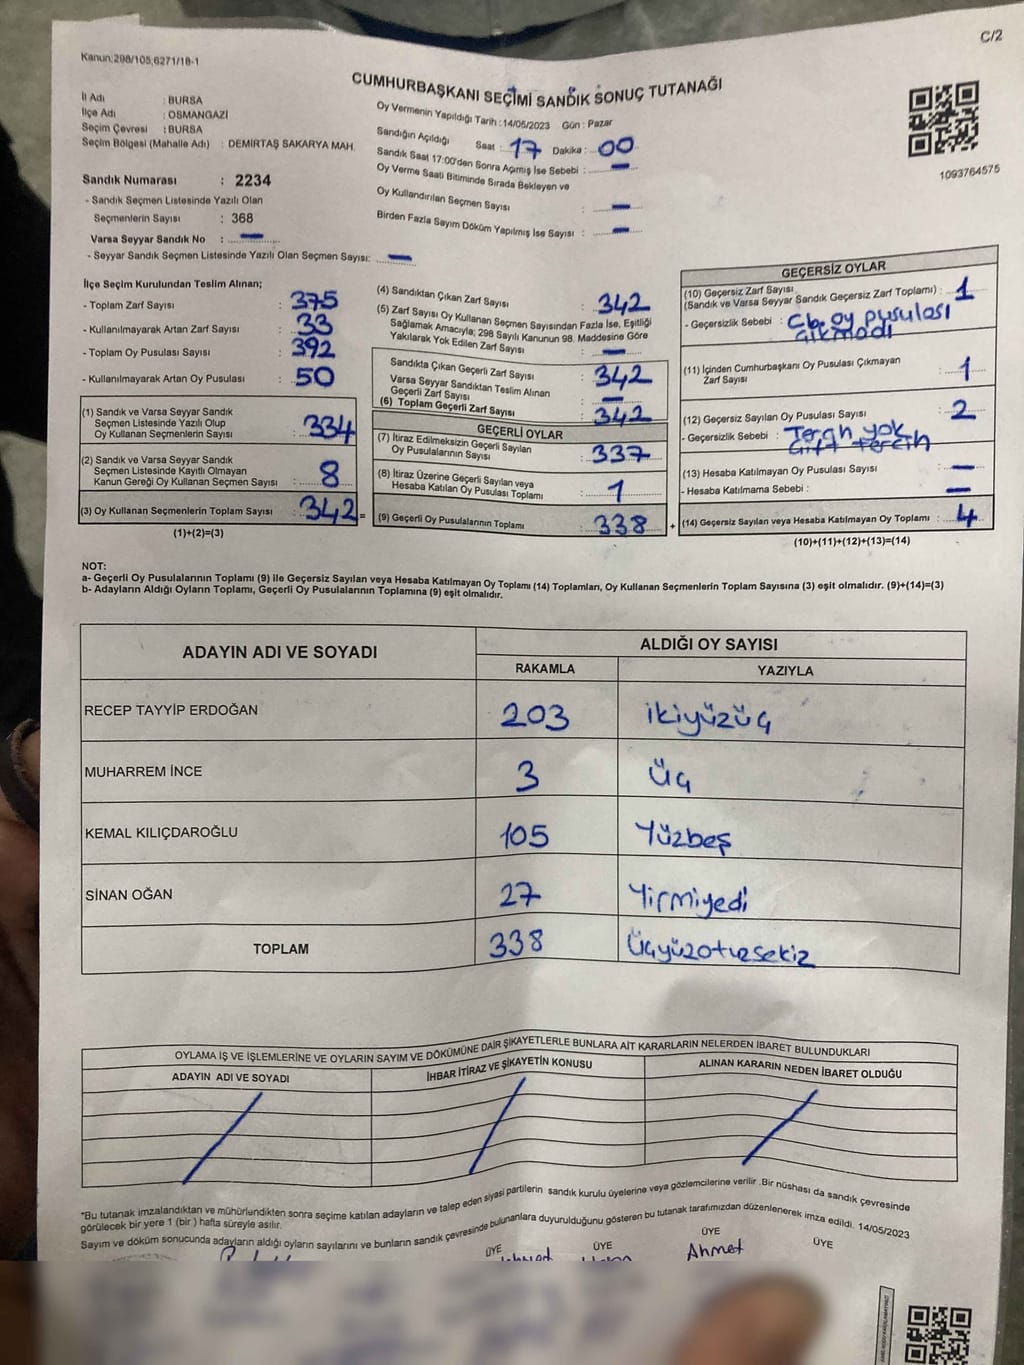 C/2
Kanun:298/105;6271/18-1
CUMHURBAŞKANI SEÇİMİ SANDIK SONUÇ TUTANAĞI
İl Adı : BURSA
İlçe Adı : OSMANGAZİ
Seçim Çevresi : BURSA
Seçim Bölgesi (Mahalle Adı) : DEMİRTAŞ SAKARYA MAH.
Sandık Numarası : 2234
- Sandık Seçmen Listesinde Yazılı Olan
Seçmenlerin Sayısı : 368
Varsa Seyyar Sandık No : —
- Seyyar Sandık Seçmen Listesinde Yazılı Olan Seçmen Sayısı: —
Oy Vermenin Yapıldığı Tarih : 14/05/2023 Gün : Pazar
Sandığın Açıldığı Saat : 17 Dakika : 00
Sandık Saat 17:00'den Sonra Açılmış İse Sebebi : —
Oy Verme Saati Bitiminde Sırada Bekleyen ve
Oy Kullandırılan Seçmen Sayısı : —
Birden Fazla Sayım Döküm Yapılmış İse Sayısı : —
1093764575
İlçe Seçim Kurulundan Teslim Alınan;
- Toplam Zarf Sayısı : 375
- Kullanılmayarak Artan Zarf Sayısı : 33
- Toplam Oy Pusulası Sayısı : 392
- Kullanılmayarak Artan Oy Pusulası : 50
(1) Sandık ve Varsa Seyyar Sandık
Seçmen Listesinde Yazılı Olup
Oy Kullanan Seçmenlerin Sayısı : 334
(2) Sandık ve Varsa Seyyar Sandık
Seçmen Listesinde Kayıtlı Olmayan
Kanun Gereği Oy Kullanan Seçmen Sayısı : 8
(3) Oy Kullanan Seçmenlerin Toplam Sayısı : 342 =
(1)+(2)=(3)
(4) Sandıktan Çıkan Zarf Sayısı : 342
(5) Zarf Sayısı Oy Kullanan Seçmen Sayısından Fazla İse, Eşitliği
Sağlamak Amacıyla; 298 Sayılı Kanunun 98. Maddesine Göre
Yakılarak Yok Edilen Zarf Sayısı : —
Sandıkta Çıkan Geçerli Zarf Sayısı : 342
Varsa Seyyar Sandıktan Teslim Alınan
Geçerli Zarf Sayısı : —
(6) Toplam Geçerli Zarf Sayısı : 342
GEÇERLİ OYLAR
(7) İtiraz Edilmeksizin Geçerli Sayılan
Oy Pusulalarının Sayısı : 337
(8) İtiraz Üzerine Geçerli Sayılan veya
Hesaba Katılan Oy Pusulası Toplamı : 1
(9) Geçerli Oy Pusulalarının Toplamı : 338 +
GEÇERSİZ OYLAR
(10) Geçersiz Zarf Sayısı
(Sandık ve Varsa Seyyar Sandık Geçersiz Zarf Toplamı) : 1
- Geçersizlik Sebebi : Cb. oy pusulası
çıkmadı
(11) İçinden Cumhurbaşkanı Oy Pusulası Çıkmayan
Zarf Sayısı : 1
(12) Geçersiz Sayılan Oy Pusulası Sayısı : 2
- Geçersizlik Sebebi : Tercih yok
çift tercih
(13) Hesaba Katılmayan Oy Pusulası Sayısı : —
- Hesaba Katılmama Sebebi : —
(14) Geçersiz Sayılan veya Hesaba Katılmayan Oy Toplamı : 4
(10)+(11)+(12)+(13)=(14)
NOT:
a- Geçerli Oy Pusulalarının Toplamı (9) ile Geçersiz Sayılan veya Hesaba Katılmayan Oy Toplamı (14) Toplamları, Oy Kullanan Seçmenlerin Toplam Sayısına (3) eşit olmalıdır. (9)+(14)=(3)
b- Adayların Aldığı Oyların Toplamı, Geçerli Oy Pusulalarının Toplamına (9) eşit olmalıdır.
ADAYIN ADI VE SOYADI ALDIĞI OY SAYISI
RAKAMLA YAZIYLA
RECEP TAYYİP ERDOĞAN 203 ikiyüzüç
MUHARREM İNCE 3 Üç
KEMAL KILIÇDAROĞLU 105 Yüzbeş
SİNAN OĞAN 27 Yirmiyedi
TOPLAM 338 Üçyüzotuzsekiz
OYLAMA İŞ VE İŞLEMLERİNE VE OYLARIN SAYIM VE DÖKÜMÜNE DAİR ŞİKAYETLERLE BUNLARA AİT KARARLARIN NELERDEN İBARET BULUNDUKLARI
ADAYIN ADI VE SOYADI İHBAR İTİRAZ VE ŞİKAYETİN KONUSU ALINAN KARARIN NEDEN İBARET OLDUĞU
*Bu tutanak imzalandıktan ve mühürlendikten sonra seçime katılan adayların ve talep eden siyasi partilerin sandık kurulu üyelerine veya gözlemcilerine verilir .Bir nüshası da sandık çevresinde
görülecek bir yere 1 (bir ) hafta süreyle asılır.
Sayım ve döküm sonucunda adayların aldığı oyların sayılarını ve bunların sandık çevresinde bulunanlara duyurulduğunu gösteren bu tutanak tarafımızdan düzenlenerek imza edildi. 14/05/2023
ÜYE ÜYE ÜYE ÜYE
Ahmet